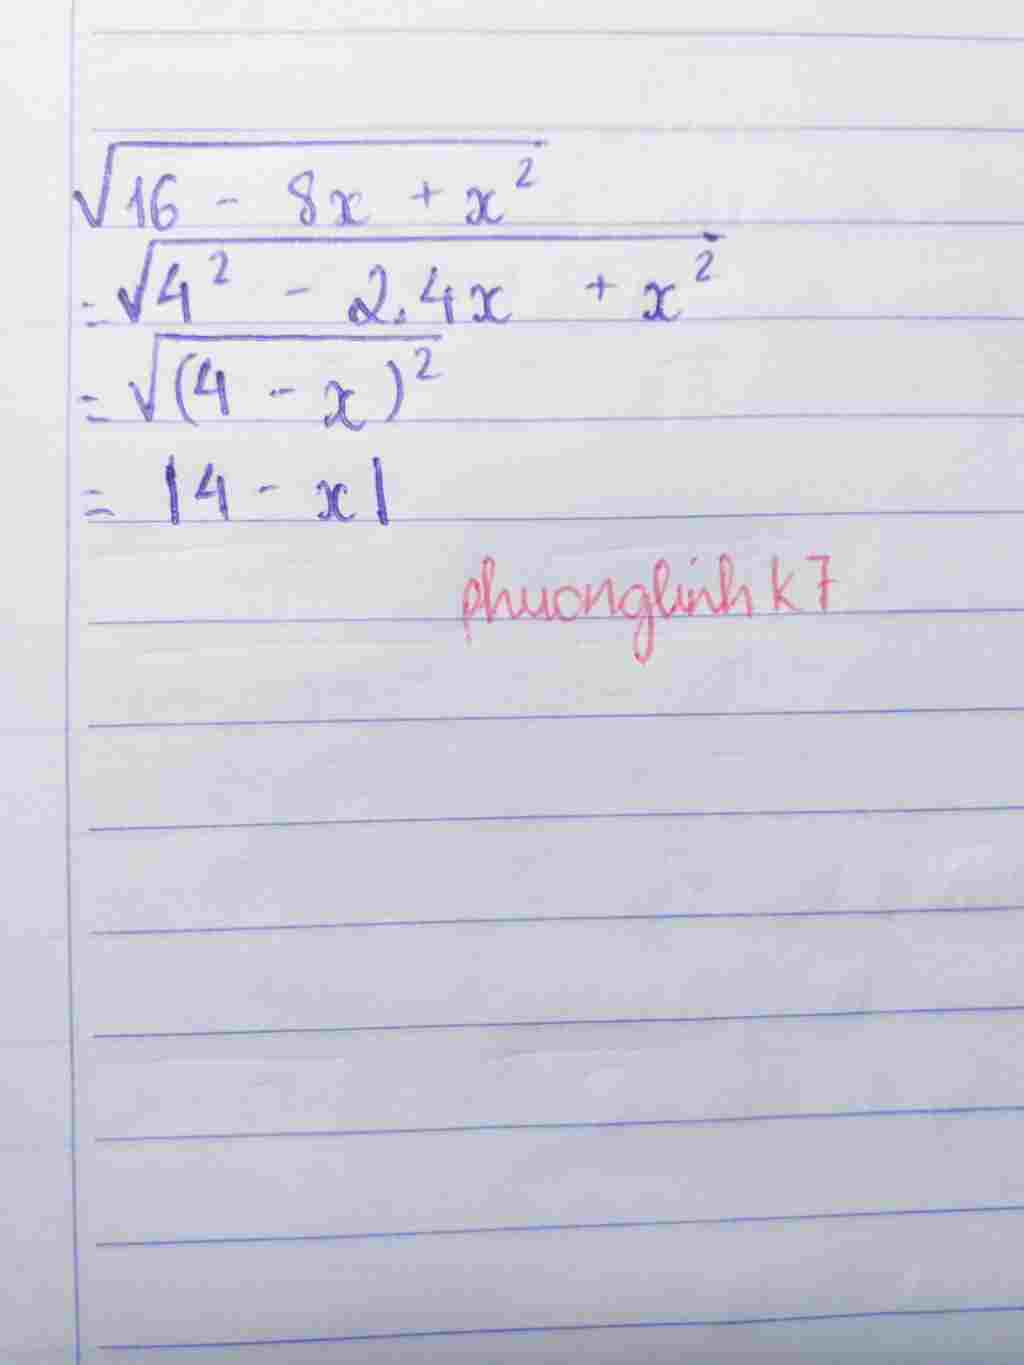 √(16 - 8x + x²)
= √(4² - 2.4x + x²)
= √((4 - x)²)
= |4 - x|
phuonglinh k7